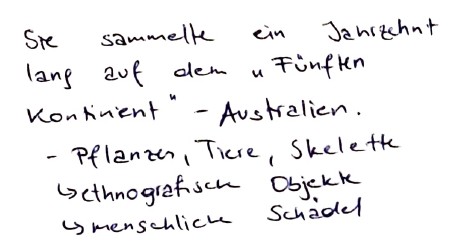 Sie sammelte ein Jahrzehnt
lang auf dem „Fünften
Kontinent" - Australien.
- Pflanzen, Tiere, Skelette
↳ ethnografische Objekte
↳ menschliche Schädel